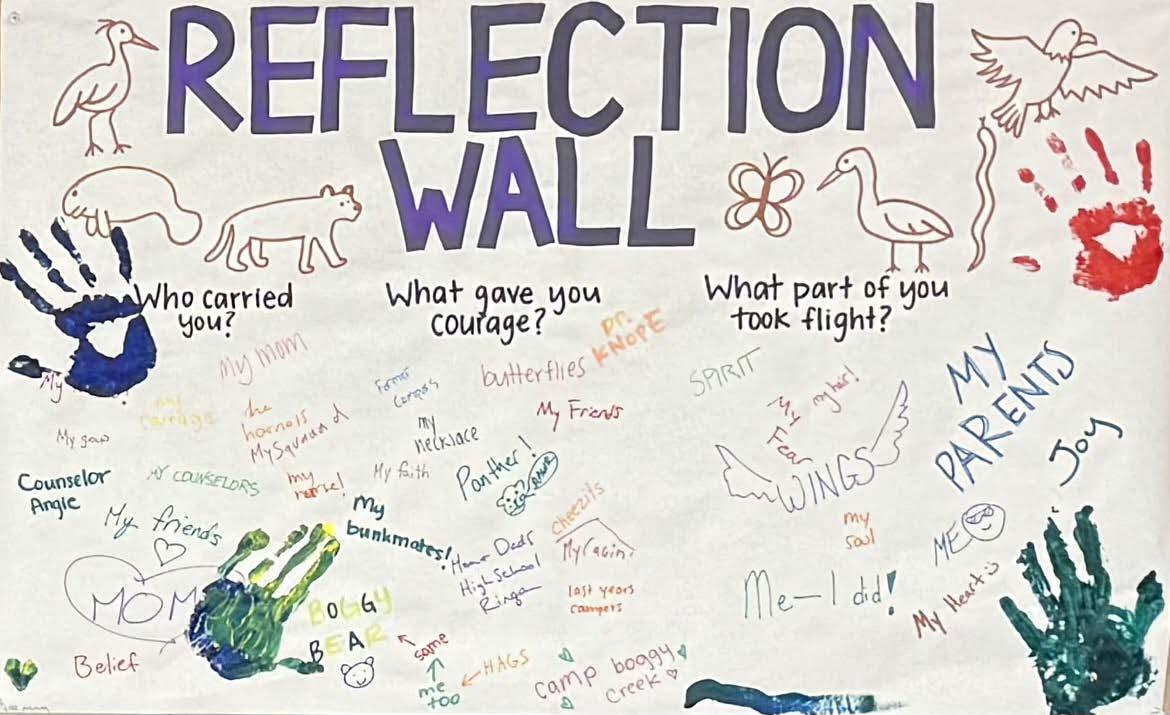 REFLECTION
WALL
Who carried
you?
My mom
My
my
courage
the
hornets
My Squad
My gaw
Counselor
Angie
MY COUNSELORS
my
nurse!
My friends
My
bunkmates!
MOM
BOGGY
BEAR
Belief
same
me
too
HAGS
What gave you
courage?
Dr.
KNOPE
butterflies
Former
campers
My Friends
my
necklace
My faith
Panther!
ROAR
cheezits
My cabin!
Home Dads
High School
Ring
last years
campers
camp boggy
creek
What part of you
took flight?
SPIRIT
My
Fear
my hair!
WINGS
MY
PARENTS
JOY
my
soul
ME
Me—I did!
My Heart is